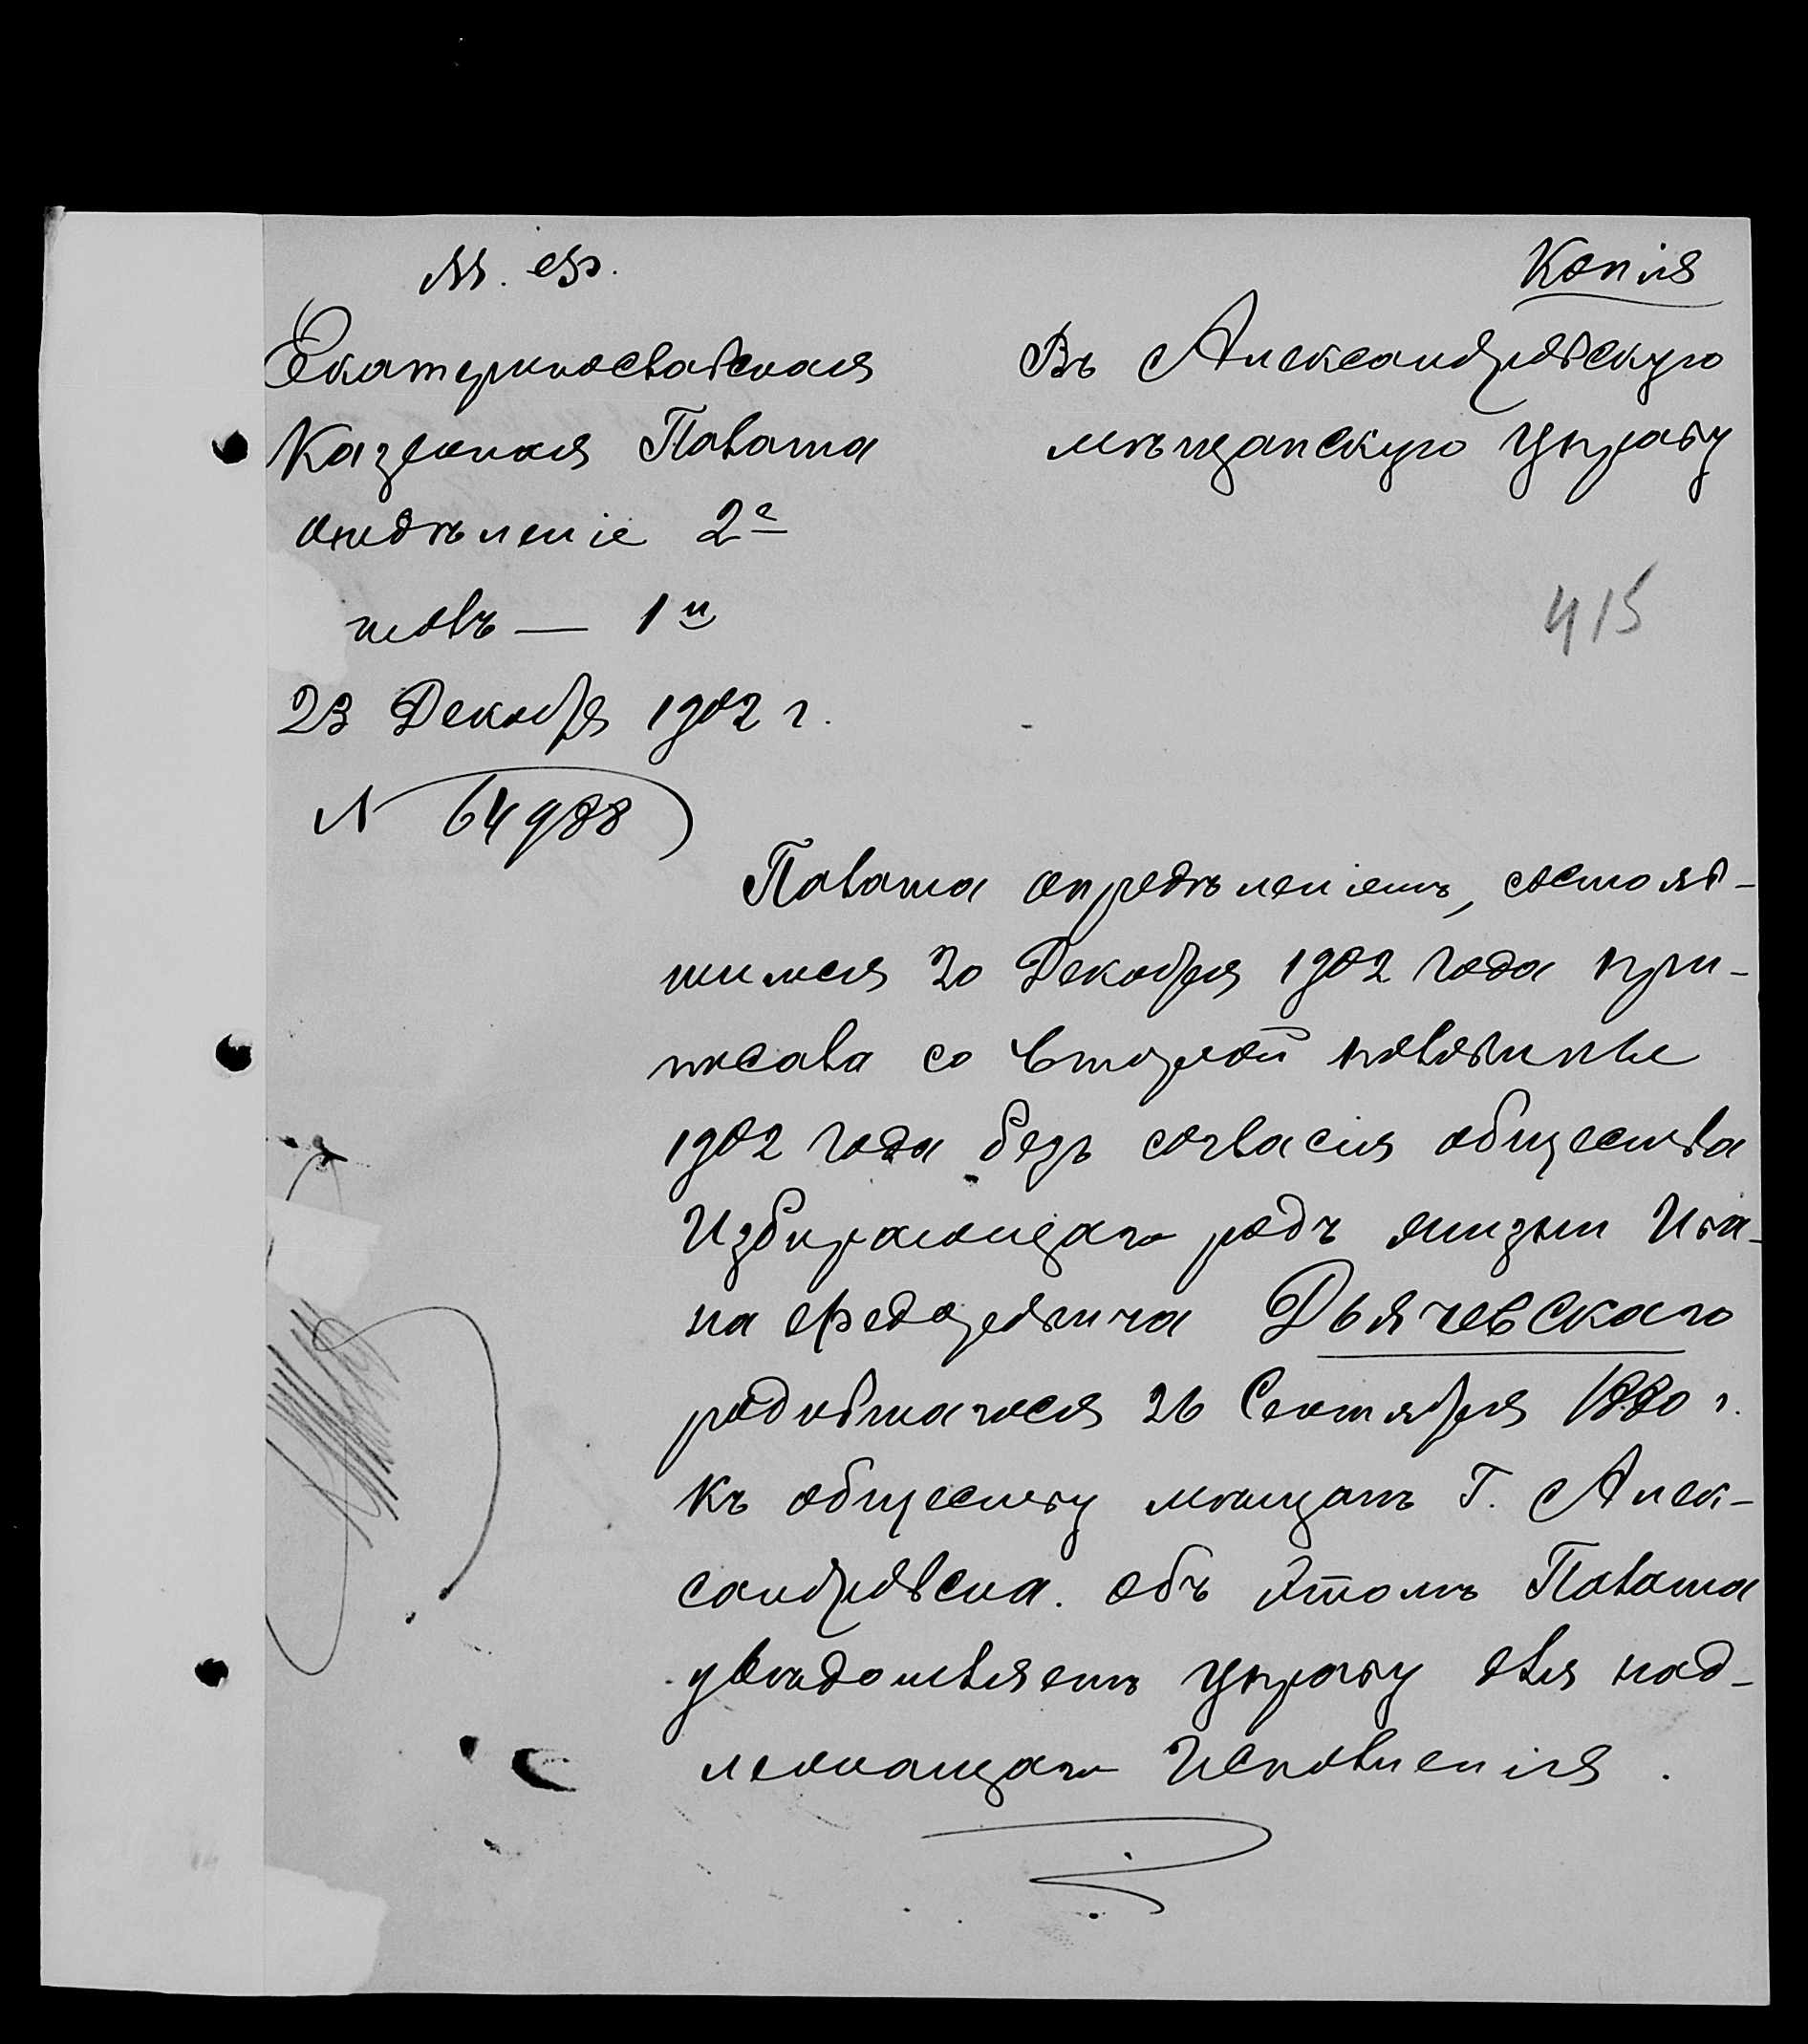 М. Ф.
Копія
Екатеринославская
Казенная Палата
отдѣленіе 2е
столъ — 1й
23 Декабря 1902 г.
N 64988
Въ Александровскую
мѣщанскую Управу
415
Палата опредѣленіемъ, состояв-
шимся 20 Декабря 1902 года при-
писала со второй половины
1902 года безъ согласія общества
Избирающаго родъ жизни Ива-
на Федоровича Дьячевскаго
родившагося 26 Сентября 1880 г.
къ обществу мѣщанъ Г. Алек-
сандровска. объ этомъ Палата
увѣдомляетъ Управу для над-
лежащаго Исполненія.